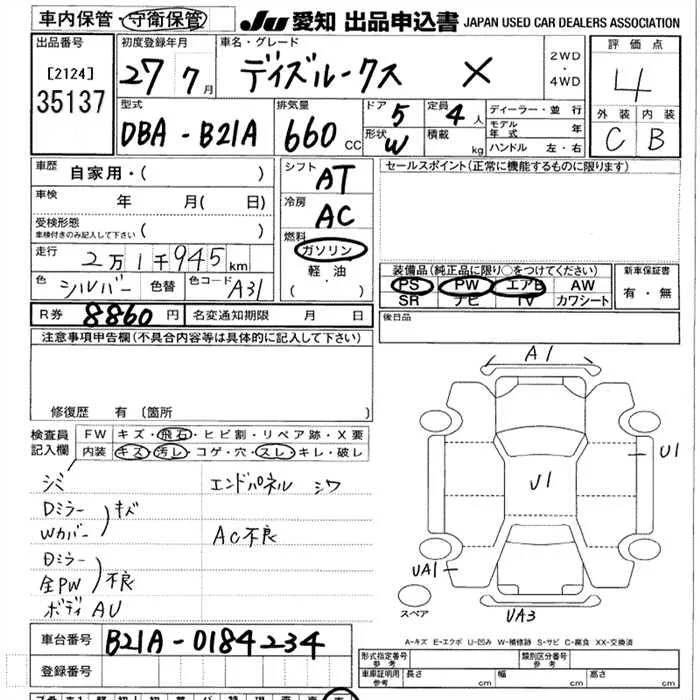 車内保管・守衛保管
JU 愛知 出品申込書 JAPAN USED CAR DEALERS ASSOCIATION
出品番号
[2124]
35137
初度登録年月
27 7月
車名・グレード
デイズルークス X
2WD
・
4WD
評価点
4
外装 内装
C B
型式
DBA-B21A
排気量
660 CC
ドア 5
形状 W
定員 4人
積載 kg
ディーラー・並行
モデル年式 年
ハンドル 左・右
車歴 自家用・( )
車検 年 月( 日)
受検形態
車検付きのみ記入して下さい ( )
走行 2万1千945km
色 シルバー 色替 色コード A31
シフト AT
冷房 AC
燃料
ガソリン
軽油
( ・ )
セールスポイント(正常に機能するものに限ります)
装備品(純正品に限り○をつけてください)
PS PW エアB AW
SR ナビ TV カワシート
新車保証書
有・無
R券 8860円 名変通知期限 月 日
後日品
注意事項申告欄(不具合内容等は具体的に記入して下さい)
修復歴 有 〔箇所 〕
検査員記入欄
FW キズ・飛石・ヒビ割・リペア跡・X要
内装 キズ・汚レ・コゲ・穴・スレ・キレ・破レ
シミ
Dミラー
Wカバー
)キズ
Dミラー
全PW
)不良
ボディ AU
エンドパネル シワ
AC不良
A1
U1
U1
UA1
UA3
スペア
A-キズ E-エクボ U-凹み W-補修跡 S-サビ C-腐食 XX-交換済
車台番号 B21A-0184234
登録番号
形式指定番号 参考
類別区分番号 参考
車庫証明用 参考 長さ cm 幅 cm 高さ cm